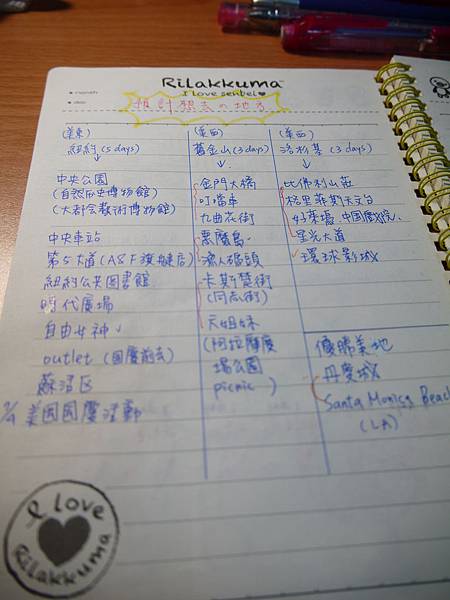 month
Rilakkuma™
I love senbei
date
預計想去の地方
(美東)
紐約(5 days)
中央公園
(自然历史博物館)
(大都会藝術博物館)
中央車站
第5大道(A&F旗艦店)
紐約公共图書館
時代廣場
自由女神
outlet (國慶前去)
蘇活区
7/4 美国國慶活動
(美西)
舊金山(3 days)
金門大橋
叮噹車
九曲花街
惡魔島
漁人碼頭
卡斯楚街
(同志街)
六姐妹
(阿拉摩廣
場公園
picnic )
(美西)
洛杉基(3 days)
比佛利山莊
格里菲斯天文台
好萊塢.中国戲院、
星光大道
環球影城
優勝美地
丹麥城
Santa Monica Beach
(LA)
I love
Rilakkuma